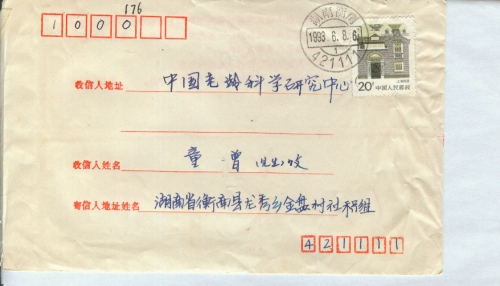 176
1 0 0 0
湖南衡南
1993.6.8.6
1
421111
上海民居
20分 中国人民邮政
收信人地址 中国老龄科学研究中心
收信人姓名 童曾 先生收
寄信人地址姓名 湖南省衡南县龙秀乡金盘村社稷组
421111